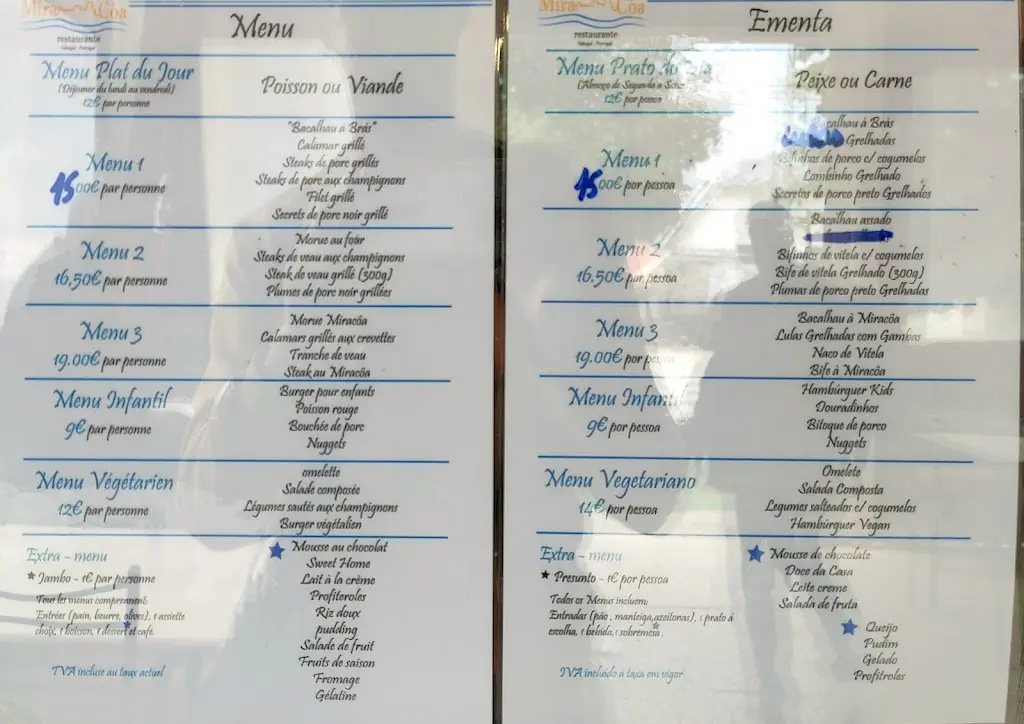 Mira Côa
restaurante
Sabugal - Portugal
Menu
Menu Plat du Jour
(Déjeuner du lundi au vendredi)
12€ par personne
Poisson ou Viande
Menu 1
15 00€ par personne
"Bacalhau à Brás"
Calamar grillé
Steaks de porc grillés
Steaks de porc aux champignons
Filet grillé
Secrets de porc noir grillé
Menu 2
16,50€ par personne
Morue au four
Steaks de veau aux champignons
Steak de veau grillé (300g)
Plumes de porc noir grillées
Menu 3
19.00€ par personne
Morue Miracôa
Calamars grillés aux crevettes
Tranche de veau
Steak au Miracôa
Menu Infantil
9€ par personne
Burger pour enfants
Poisson rouge
Bouchée de porc
Nuggets
Menu Végétarien
12€ par personne
omelette
Salade composée
Légumes sautés aux champignons
Burger végétalien
Extra - menu
Jambo - 1€ par personne
Tous les menus comprennent:
Entrées (pain, beurre, olives), 1 assiette
choix, 1 boisson, 1 dessert et café.
IVA incluse au taux actuel
Mousse au chocolat
Sweet Home
Lait à la crème
Profiteroles
Riz doux
pudding
Salade de fruit
Fruits de saison
Fromage
Gélatine
Mira Côa
restaurante
Sabugal - Portugal
Ementa
Menu Prato do Dia
(Almoço de Segunda a Sexta
12€ por pessoa
Peixe ou Carne
Menu 1
15 00€ por pessoa
calhau à Brás
Grelhadas
Bifinhos de porco c/ cogumelos
Lombinho Grelhado
Secretos de porco preto Grelhados
Menu 2
16.50€ por pessoa
Bacalhau assado
Bifinhos de vitela c/ cogumelos
Bife de vitela Grelhado (300g)
Plumas de porco preto Grelhadas
Menu 3
19.00€ por pessoa
Bacalhau à Miracôa
Lulas Grelhadas com Gambas
Naco de Vitela
Bife à Miracôa
Menu Infantil
9€ por pessoa
Hambúrguer Kids
Douradinhos
Bitoque de porco
Nuggets
Menu Vegetariano
14€ por pessoa
Omelete
Salada Composta
Legumes salteados c/ cogumelos
Hambúrguer Vegan
Extra - menu
Presunto - 1€ por pessoa
Todos os Menus incluem:
Entradas (pão , manteiga,azeitonas), 1 prato à
escolha, 1 bebida,1 sobremesa .
IVA incluído à taxa em vigor
Mousse de chocolate
Doce da Casa
Leite creme
Salada de fruta
Queijo
Pudim
Gelado
Profitroles